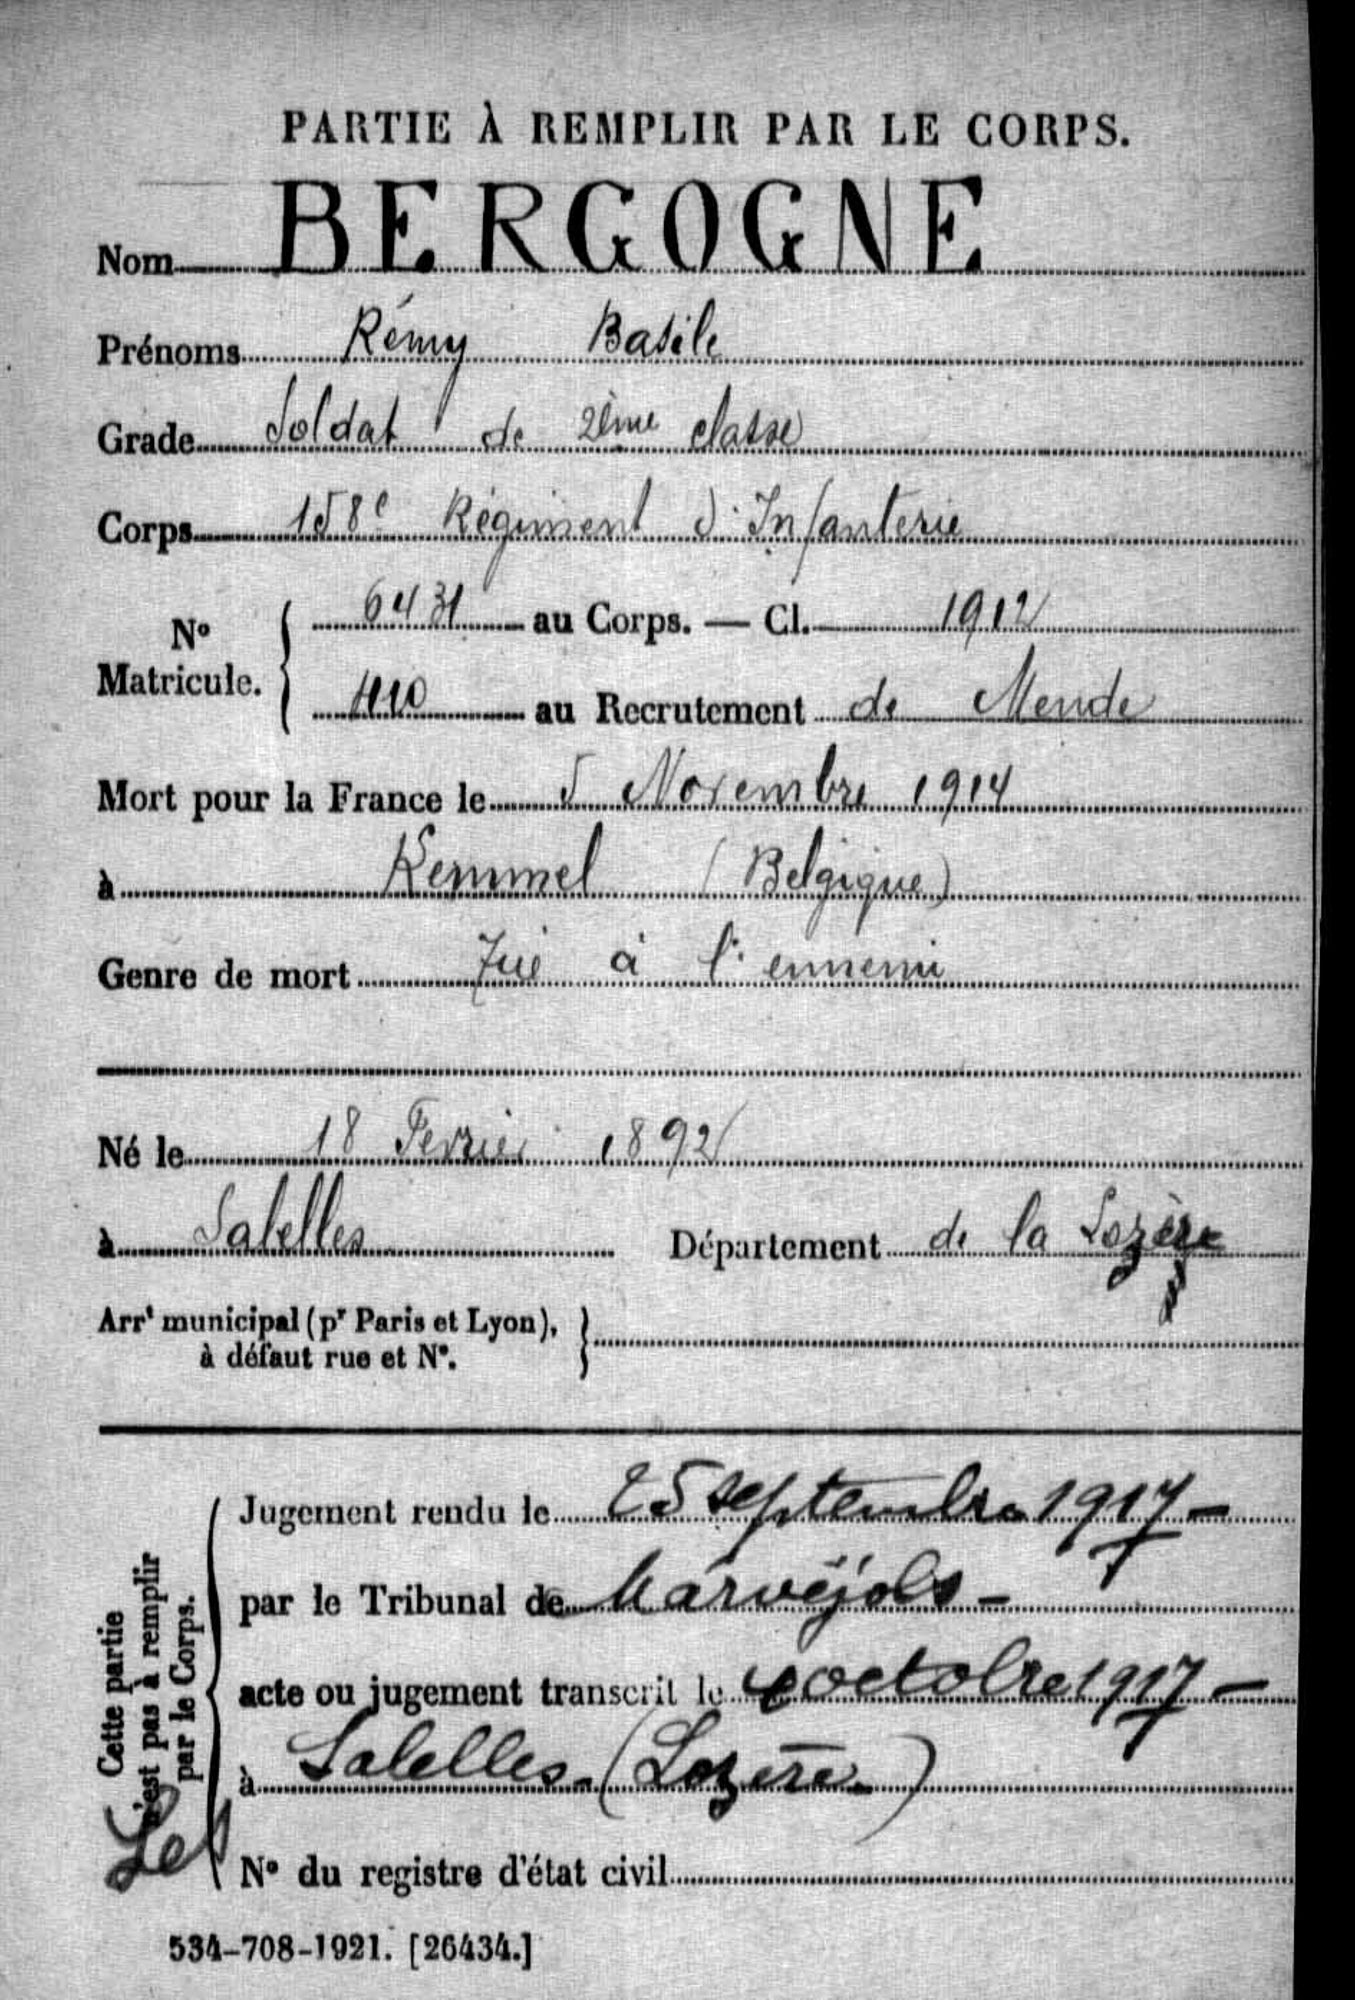 PARTIE À REMPLIR PAR LE CORPS.
Nom BERGOGNE
Prénoms Rémy Basile
Grade Soldat de 2ème classe
Corps 158e Régiment d'Infanterie
No Matricule. { 6431 au Corps. — Cl. 1912
410 au Recrutement de Mende
Mort pour la France le 5 Novembre 1914
à Kemmel (Belgique)
Genre de mort Tué à l'ennemi
Né le 18 Fevrier 1892
à Salelles Département de la Lozère
Arrt municipal (pr Paris et Lyon),
à défaut rue et No. }
Cette partie
n'est pas à remplir
par le Corps.
Jugement rendu le 25 septembre 1917 —
par le Tribunal de Marvéjols —
acte ou jugement transcrit le octobre 1917 —
à Salelles - (Lozère)
No du registre d'état civil
534-708-1921. [26434.]